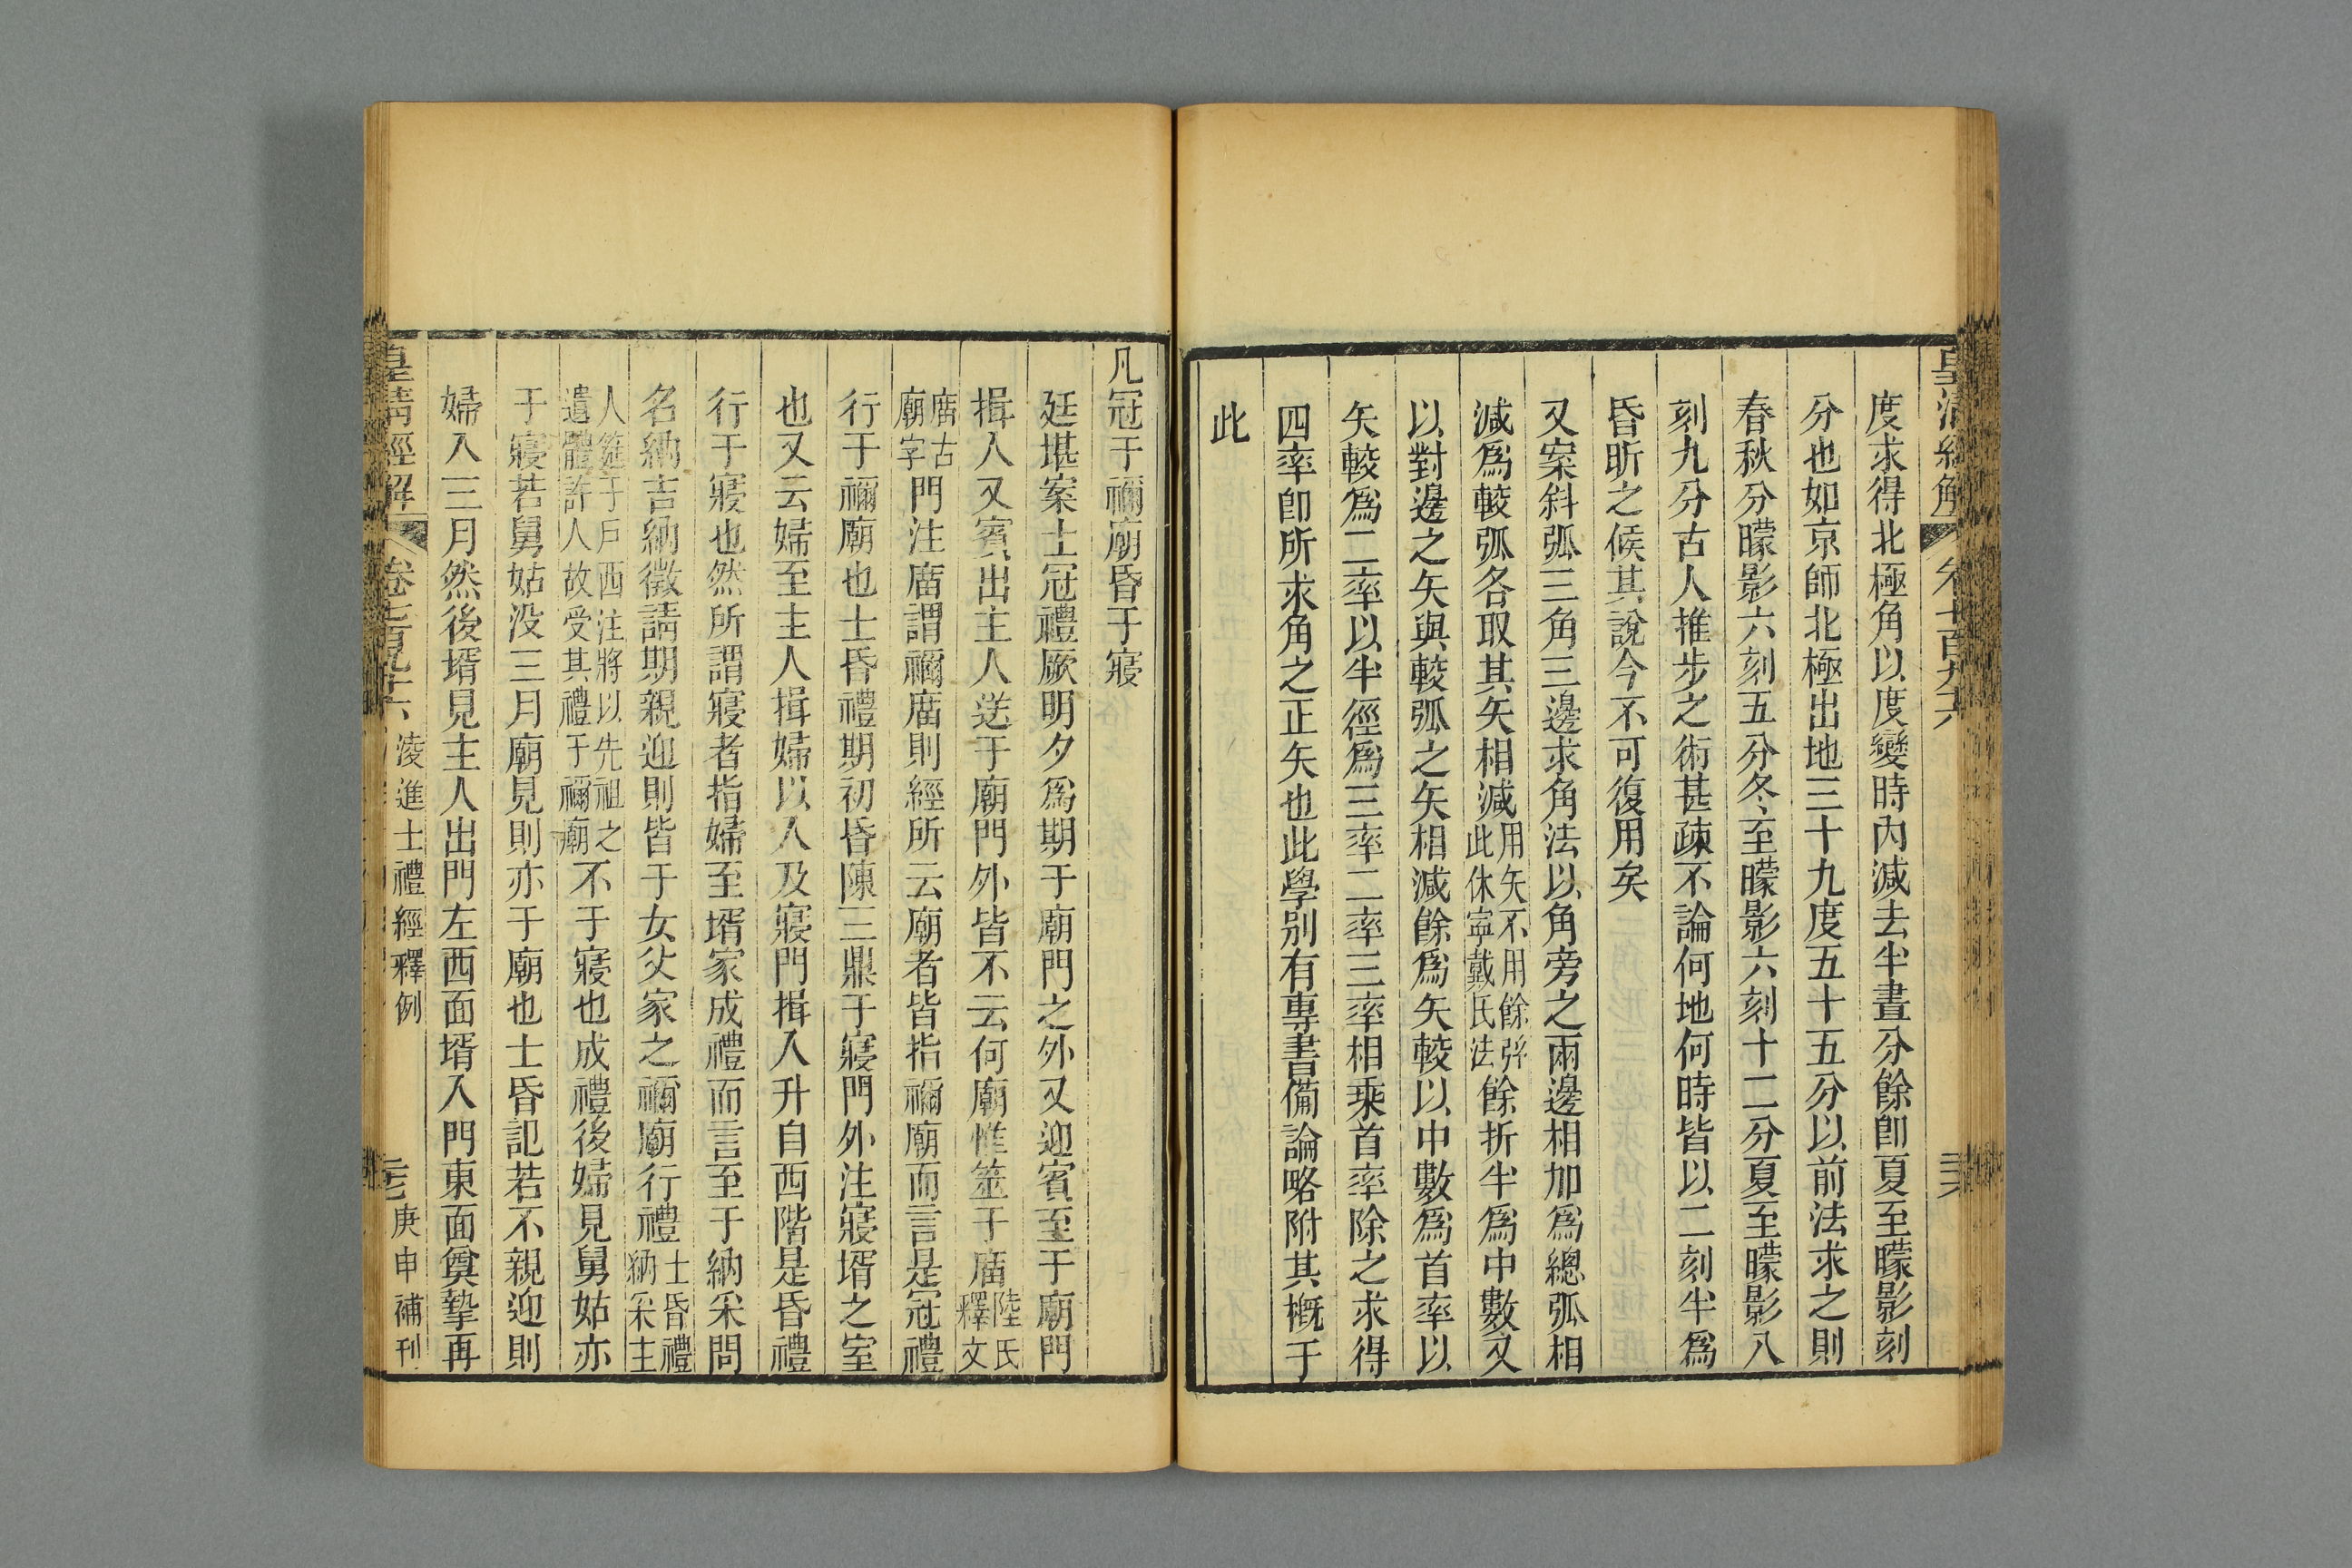 皇清經解
卷七百九十六
三六
度求得北極角以度變時內減去半晝分餘卽夏至矇影刻
分也如京師北極出地三十九度五十五分以前法求之則
春秋分矇影六刻五分冬至矇影六刻十二分夏至矇影八
刻九分古人推步之術甚疎不論何地何時皆以二刻半爲
昏昕之候其說今不可復用矣
又案斜弧三角三邊求角法以角旁之兩邊相加爲總弧相
減爲較弧各取其矢相減用矢不用餘弦此休寧戴氏法餘折半爲中數又
以對邊之矢與較弧之矢相減餘爲矢較以中數爲首率以
矢較爲二率以半徑爲三率二率三率相乘首率除之求得
四率卽所求角之正矢也此學别有專書備論略附其概于
此
凡冠于禰廟昏于寢
廷堪案士冠禮厥明夕爲期于廟門之外又迎賓至于廟門
揖入又賓出主人送于廟門外皆不云何廟惟筮于庿陸氏釋文
庿古廟字門注庿謂禰庿則經所云廟者皆指禰廟而言是冠禮
行于禰廟也士昏禮期初昏陳三鼎于寢門外注寢壻之室
也又云婦至主人揖婦以入及寢門揖入升自西階是昏禮
行于寢也然所謂寢者指婦至壻家成禮而言至于納采問
名納吉納徵請期親迎則皆于女父家之禰廟行禮士昏禮納采主
人筵于戶西注將以先祖之遺體許人故受其禮于禰廟不于寢也成禮後婦見舅姑亦
于寢若舅姑没三月廟見則亦于廟也士昏記若不親迎則
婦入三月然後壻見主人出門左西面壻入門東面奠摯再
皇清經解
卷七百九十六
淩進士禮經釋例
三七
庚申補刊